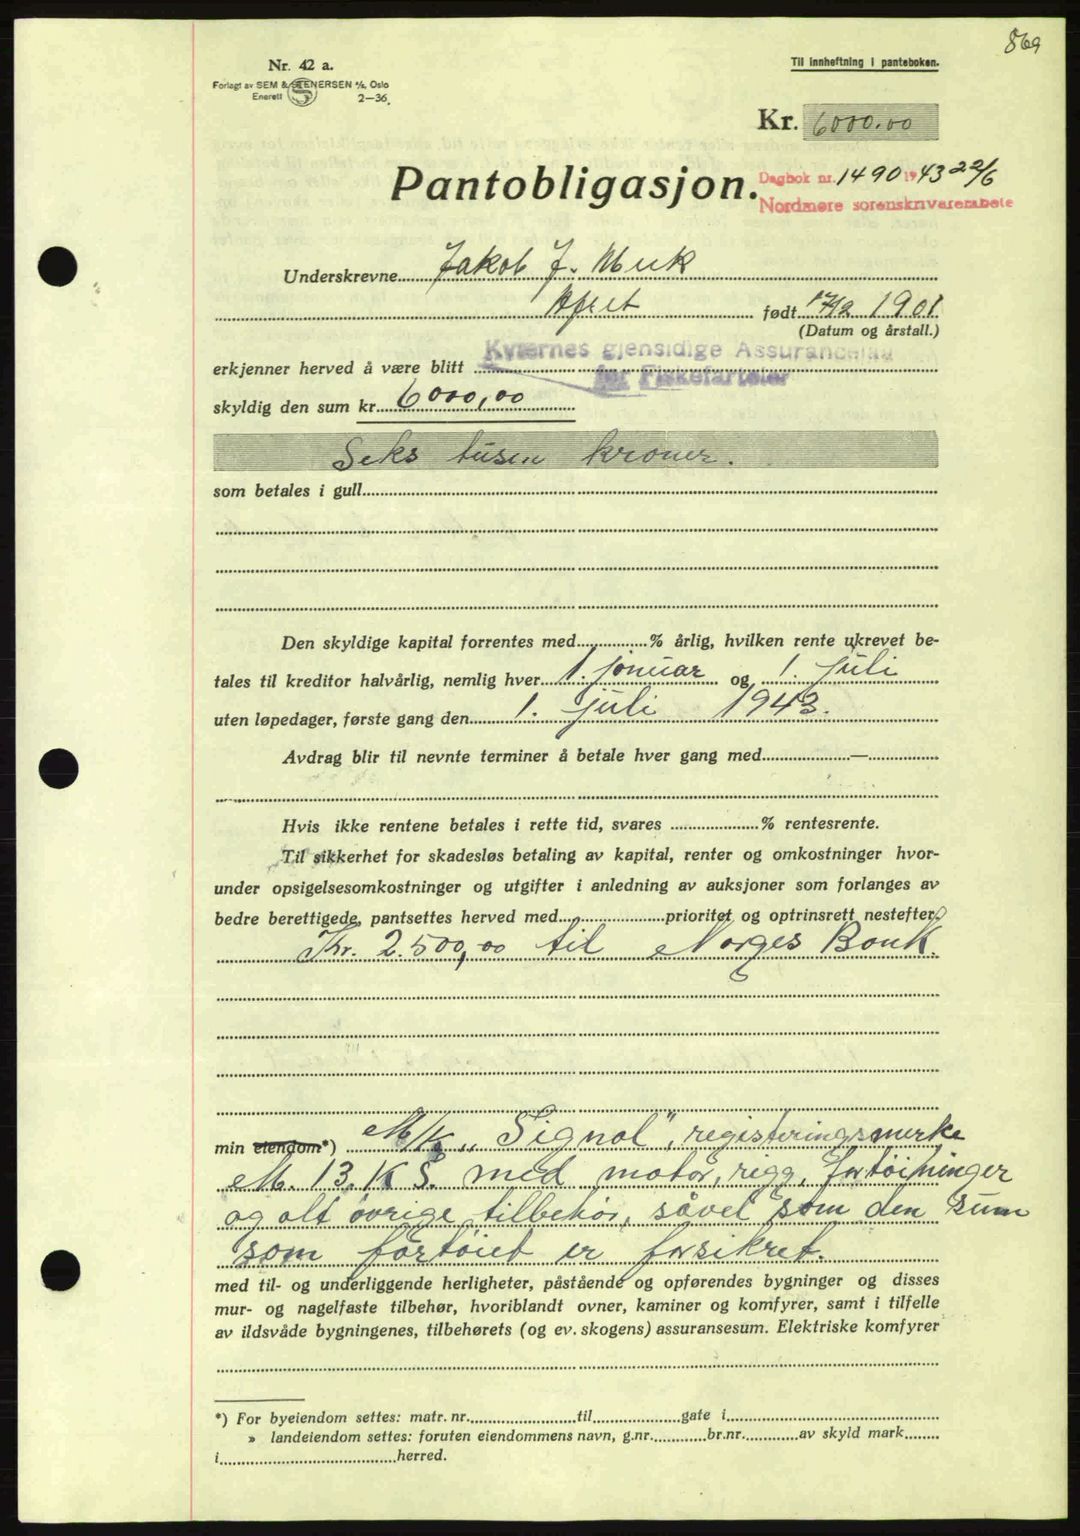 869
Nr. 42 a.
Forlagt av SEM & STENERSEN A/S, Oslo
Enerett 2—36.
Til innheftning i panteboken.
Kr. 6000.00
Pantobligasjon.
Dagbok nr. 1490 1943 22/6
Nordmøre sorenskriverembete
Underskrevne Jakob J.
født 17/12 1901
(Datum og årstall.)
erkjenner herved å være blitt Kværnes gjensidige Assurancelag
for Fiskefartøier
skyldig den sum kr. 6000,00
Seks tusen kroner.
som betales i gull
Den skyldige kapital forrentes med % årlig, hvilken rente ukrevet be-
tales til kreditor halvårlig, nemlig hver 1. januar og 1. juli
uten løpedager, første gang den 1. juli 1943.
Avdrag blir til nevnte terminer å betale hver gang med —
Hvis ikke rentene betales i rette tid, svares % rentesrente.
Til sikkerhet for skadesløs betaling av kapital, renter og omkostninger hvor-
under opsigelsesomkostninger og utgifter i anledning av auksjoner som forlanges av
bedre berettigede, pantsettes herved med prioritet og optrinsrett nestefter
Kr. 2.500,00 til Norges Bank.
min eiendom*) M/K „Signal", registeringsmerke
M. 13. K S. med motor, rigg, fortøininger
og alt øvrige tilbehør, såvel som den sum
som fartøiet er forsikret.
med til- og underliggende herligheter, påstående og opførendes bygninger og disses
mur- og nagelfaste tilbehør, hvoriblandt ovner, kaminer og komfyrer, samt i tilfelle
av ildsvåde bygningenes, tilbehørets (og ev. skogens) assuransesum. Elektriske komfyrer
*) For byeiendom settes: matr. nr. til gate i
» landeiendom settes: foruten eiendommens navn, g.nr. br.nr. av skyld mark
i herred.